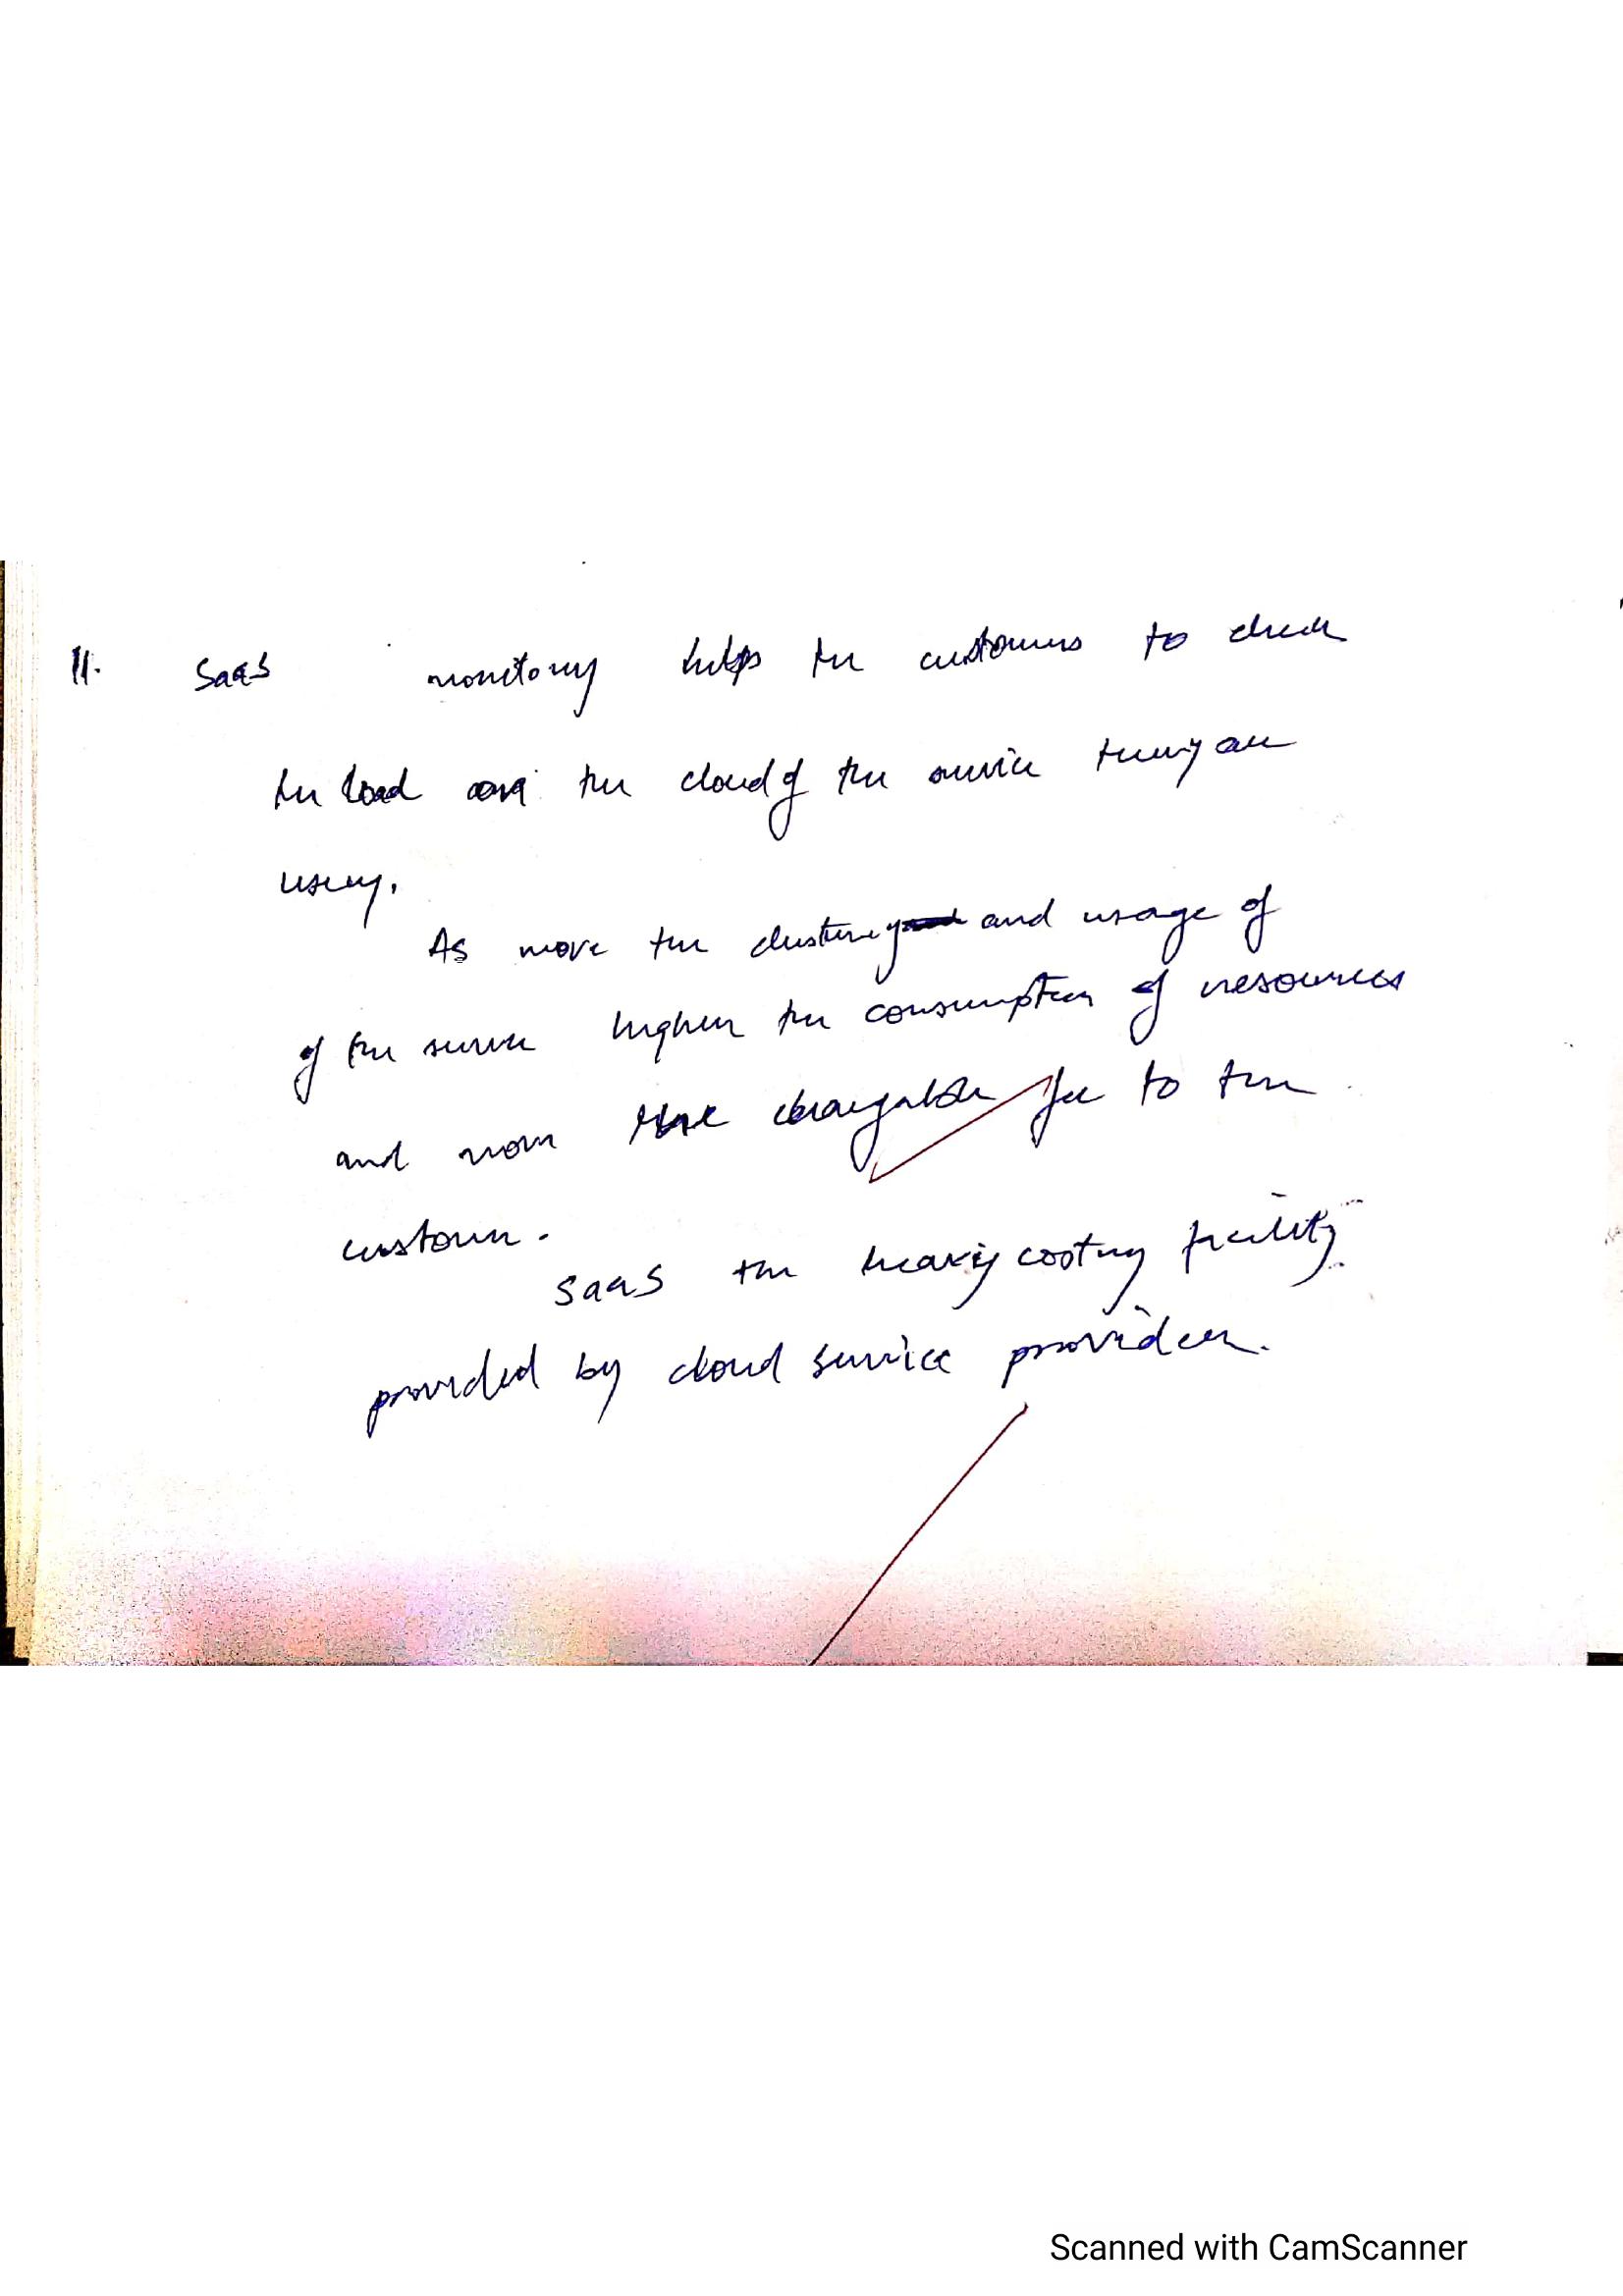 11. SaaS monitoring helps the customers to check
the load on the cloud of the service they are
using.
As more the clustering and usage of
of the service higher the consumption of resources
and more the chargable fee to the
customer.
SaaS the heavy costing facility
provided by cloud service provider.
Scanned with CamScanner